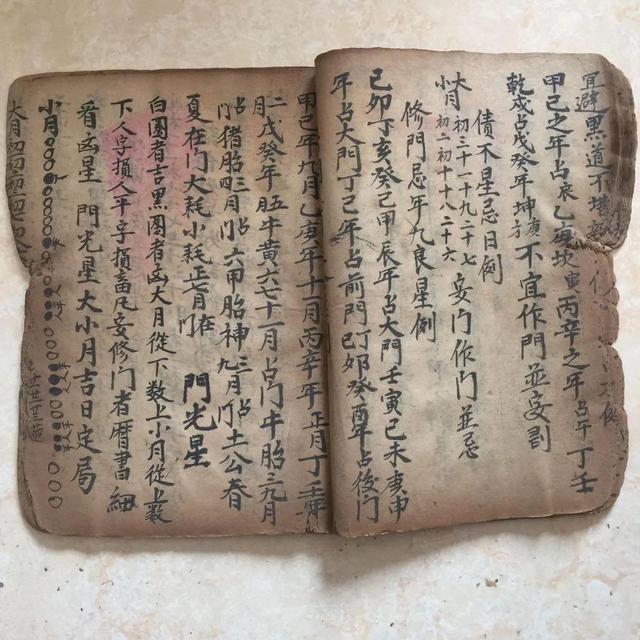 宜避黑道不堪
甲己之年占 乙庚坎寅丙辛之年占午丁壬
乾戌占戊癸年坤 不宜作門並安
債不星忌日例
大月初三十一十九二十七
小月初二初十十八二十六 安门作门並忌
修門忌年九良星例
己卯丁亥癸己甲辰年占大門壬寅己未庚申
年占大門丁己年占前門丁卯癸酉年占後门
甲己年六月乙庚年十一月丙辛年正月丁壬年
二月戊癸年五 牛黄六七十一月占门牛胎三九月
占门猪胎四三月占门六甲胎神九三月占门土公春
夏在门大耗小耗正七月在门 門光星
白圈者吉黑圈者凶大月從下数上小月從上数
下人字損人平字損畜凡安修门者曆書細
看凶星 門光星大小月吉日定局
小月
大月初初初初